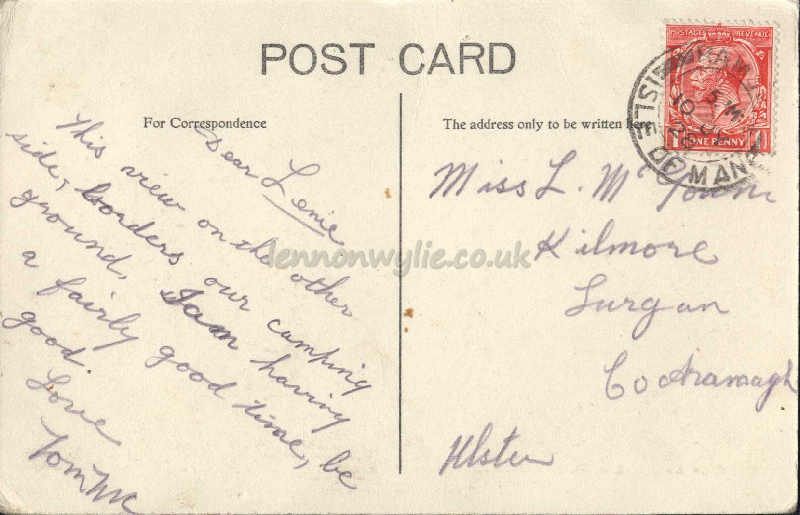 POST CARD
For Correspondence
Dear Lenie
This view on the other
side, borders our camping
ground, I am having
a fairly good time, be
good.
Love
Tom
The address only to be written here
Miss L. Mc
Kilmore
Lurgan
Co Armagh
Ulster
POSTAGE REVENUE
ONE PENNY
ISLE OF MAN
lennonwylie.co.uk